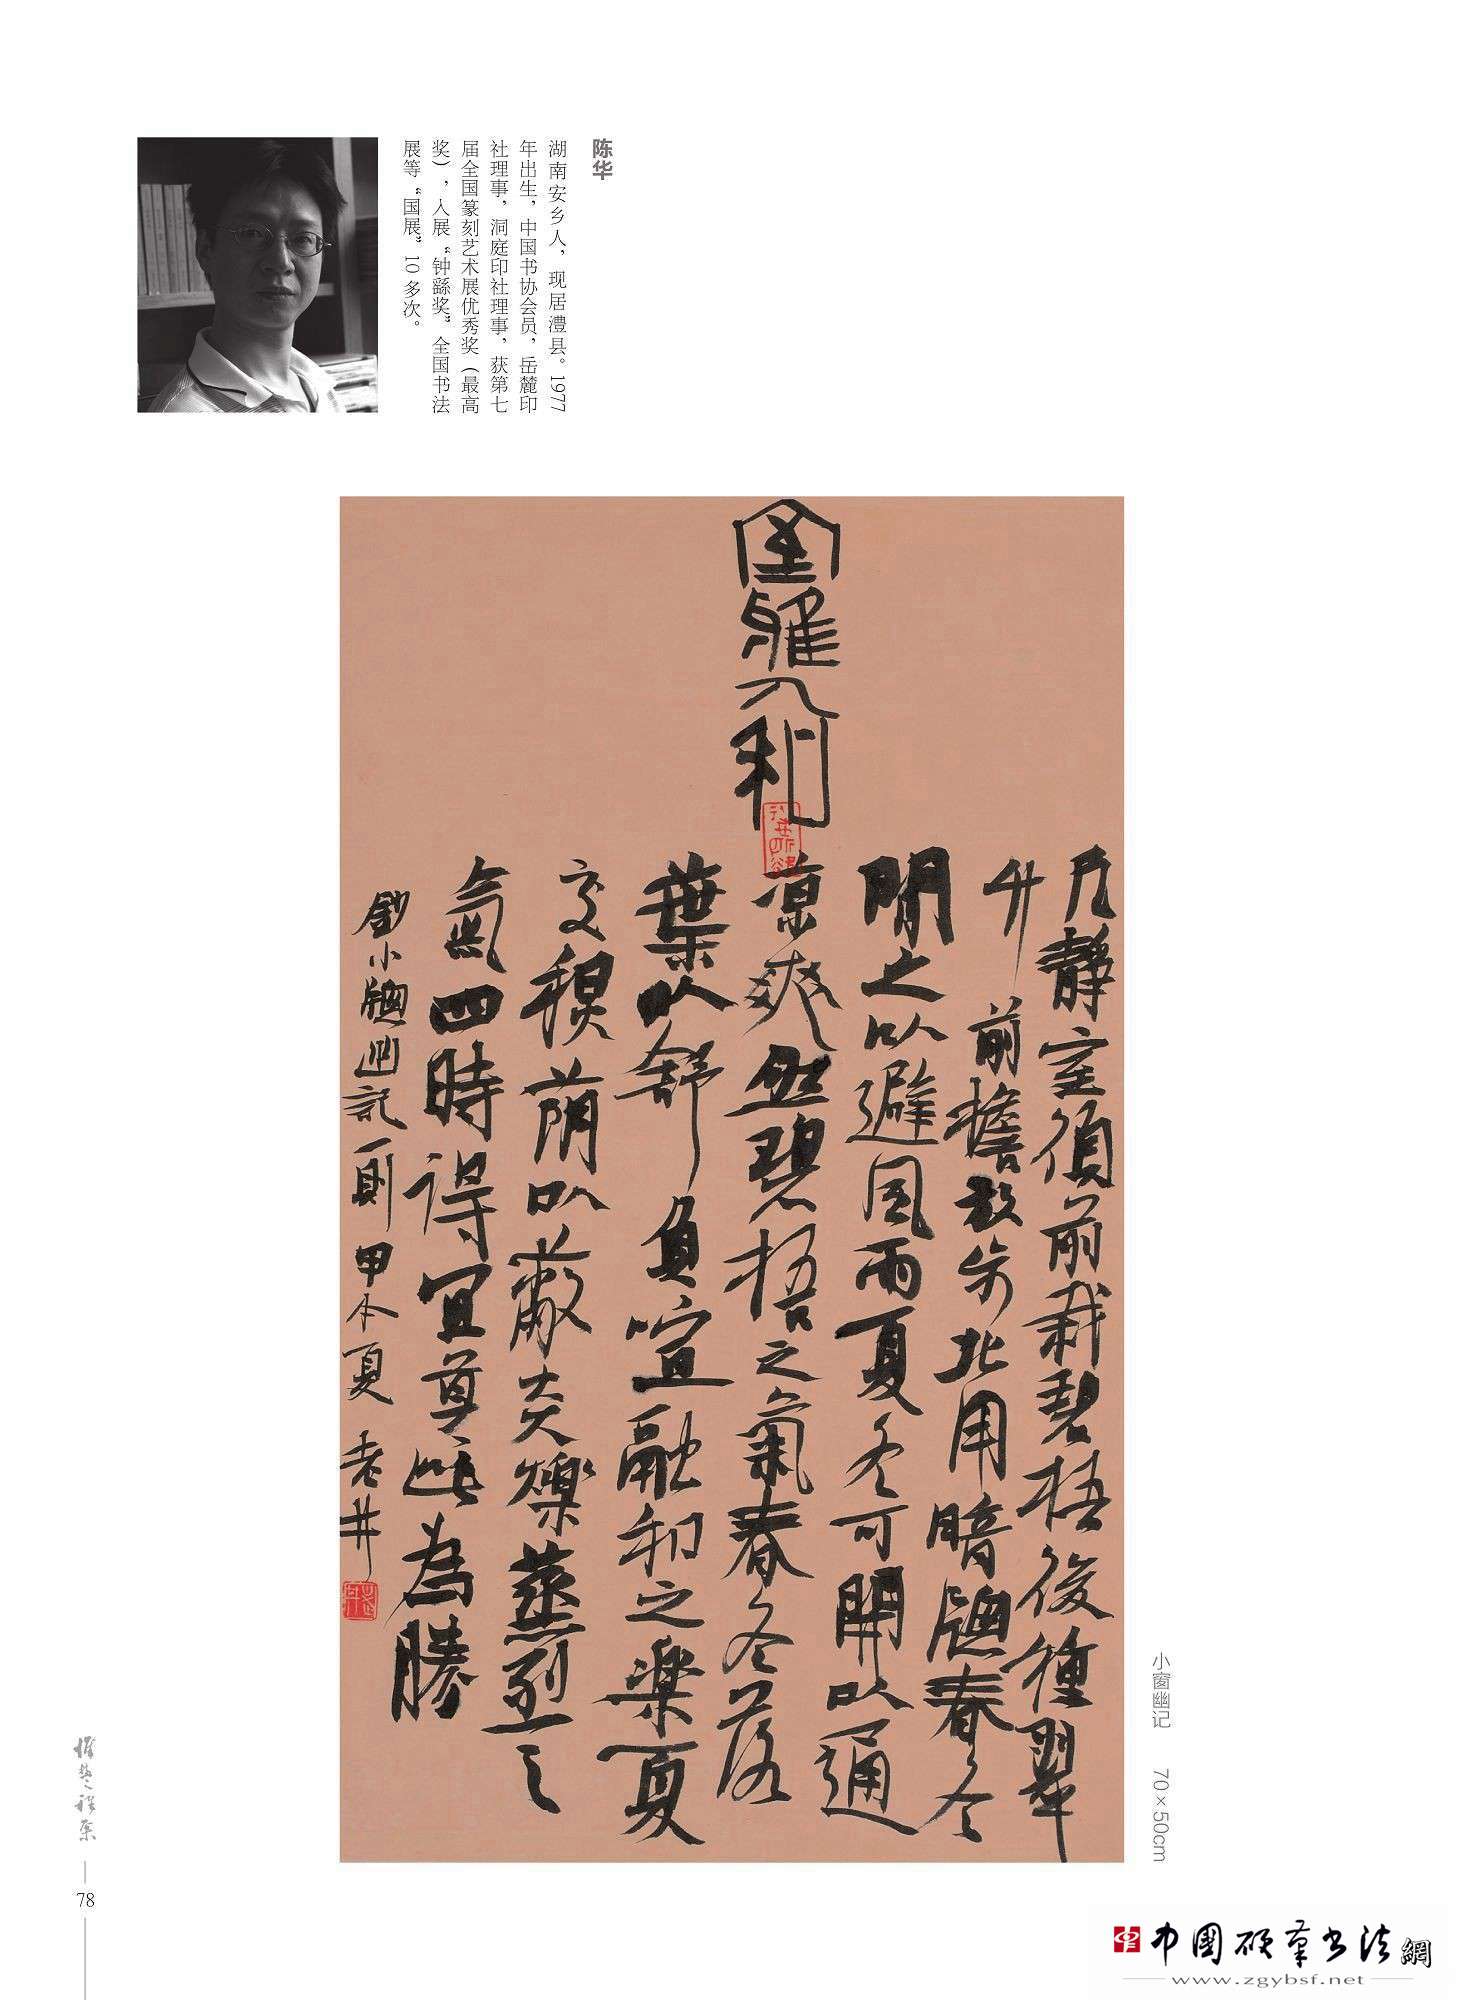 陈华
湖南安乡人，现居澧县。1977
年出生，中国书协会员，岳麓印
社理事，洞庭印社理事，获第七
届全国篆刻艺术展优秀奖（最高
奖），入展“钟繇奖”全国书法
展等“国展”10多次。
室雅人和
凡静室須前栽碧梧後種翠
竹前檐放步北用暗牕春冬
閉之以避風雨夏冬可開以通
涼爽然碧梧之氣春冬落
葉以舒負喧融和之樂夏
交穠蔭以蔽炎爍蒸烈之
氣四時得宜尊此為勝
鈔小牕幽記一則甲午夏老井
小窗幽记 70×50cm
78
中国硬筆书法網
www.zgybsf.net